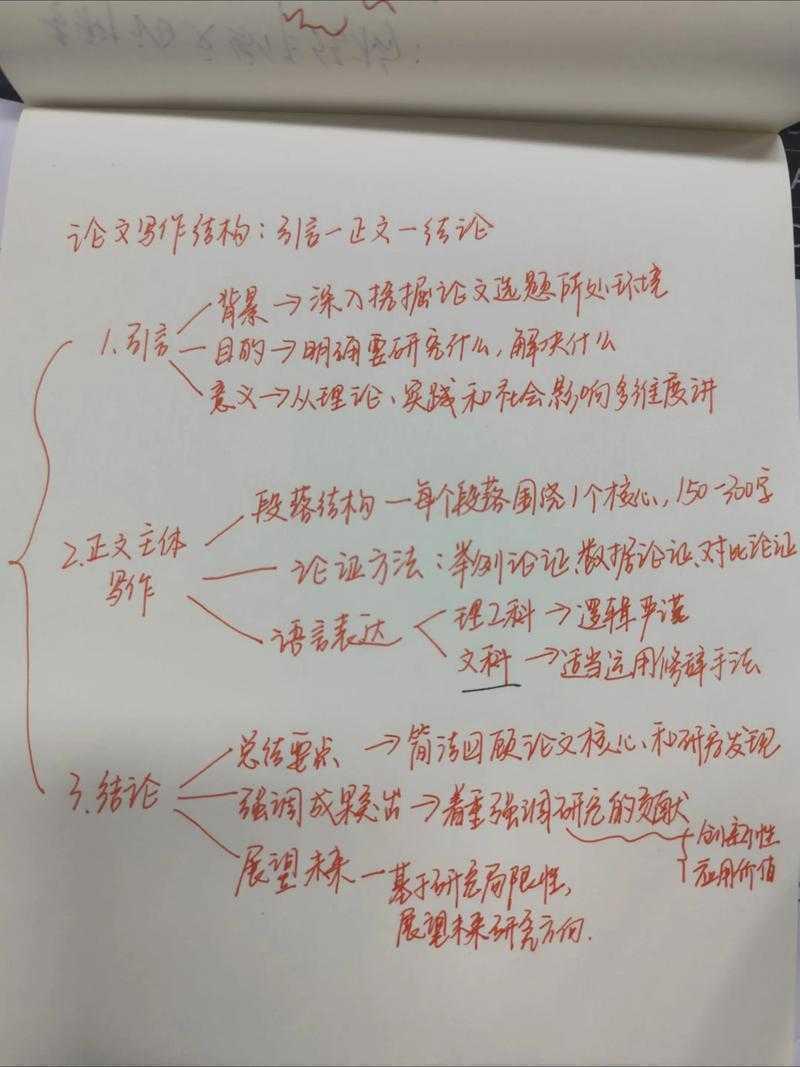 论文写作结构：引言—正文—结论
1.引言
背景→深入挖掘论文选题所处环境
目的→明确要研究什么，解决什么
意义→从理论、实践和社会影响多维度讲
2.正文主体
写作
段落结构—每个段落围绕1个核心，150-300字
论证方法：举例论证、数据论证、对比论证
语言表达
理工科→逻辑严谨
文科→适当运用修辞手法
3.结论
总结要点→简洁回顾论文核心和研究发现
强调成果突出→着重强调研究的贡献
创新性
应用价值
展望未来—基于研究局限性，
展望未来研究方向.